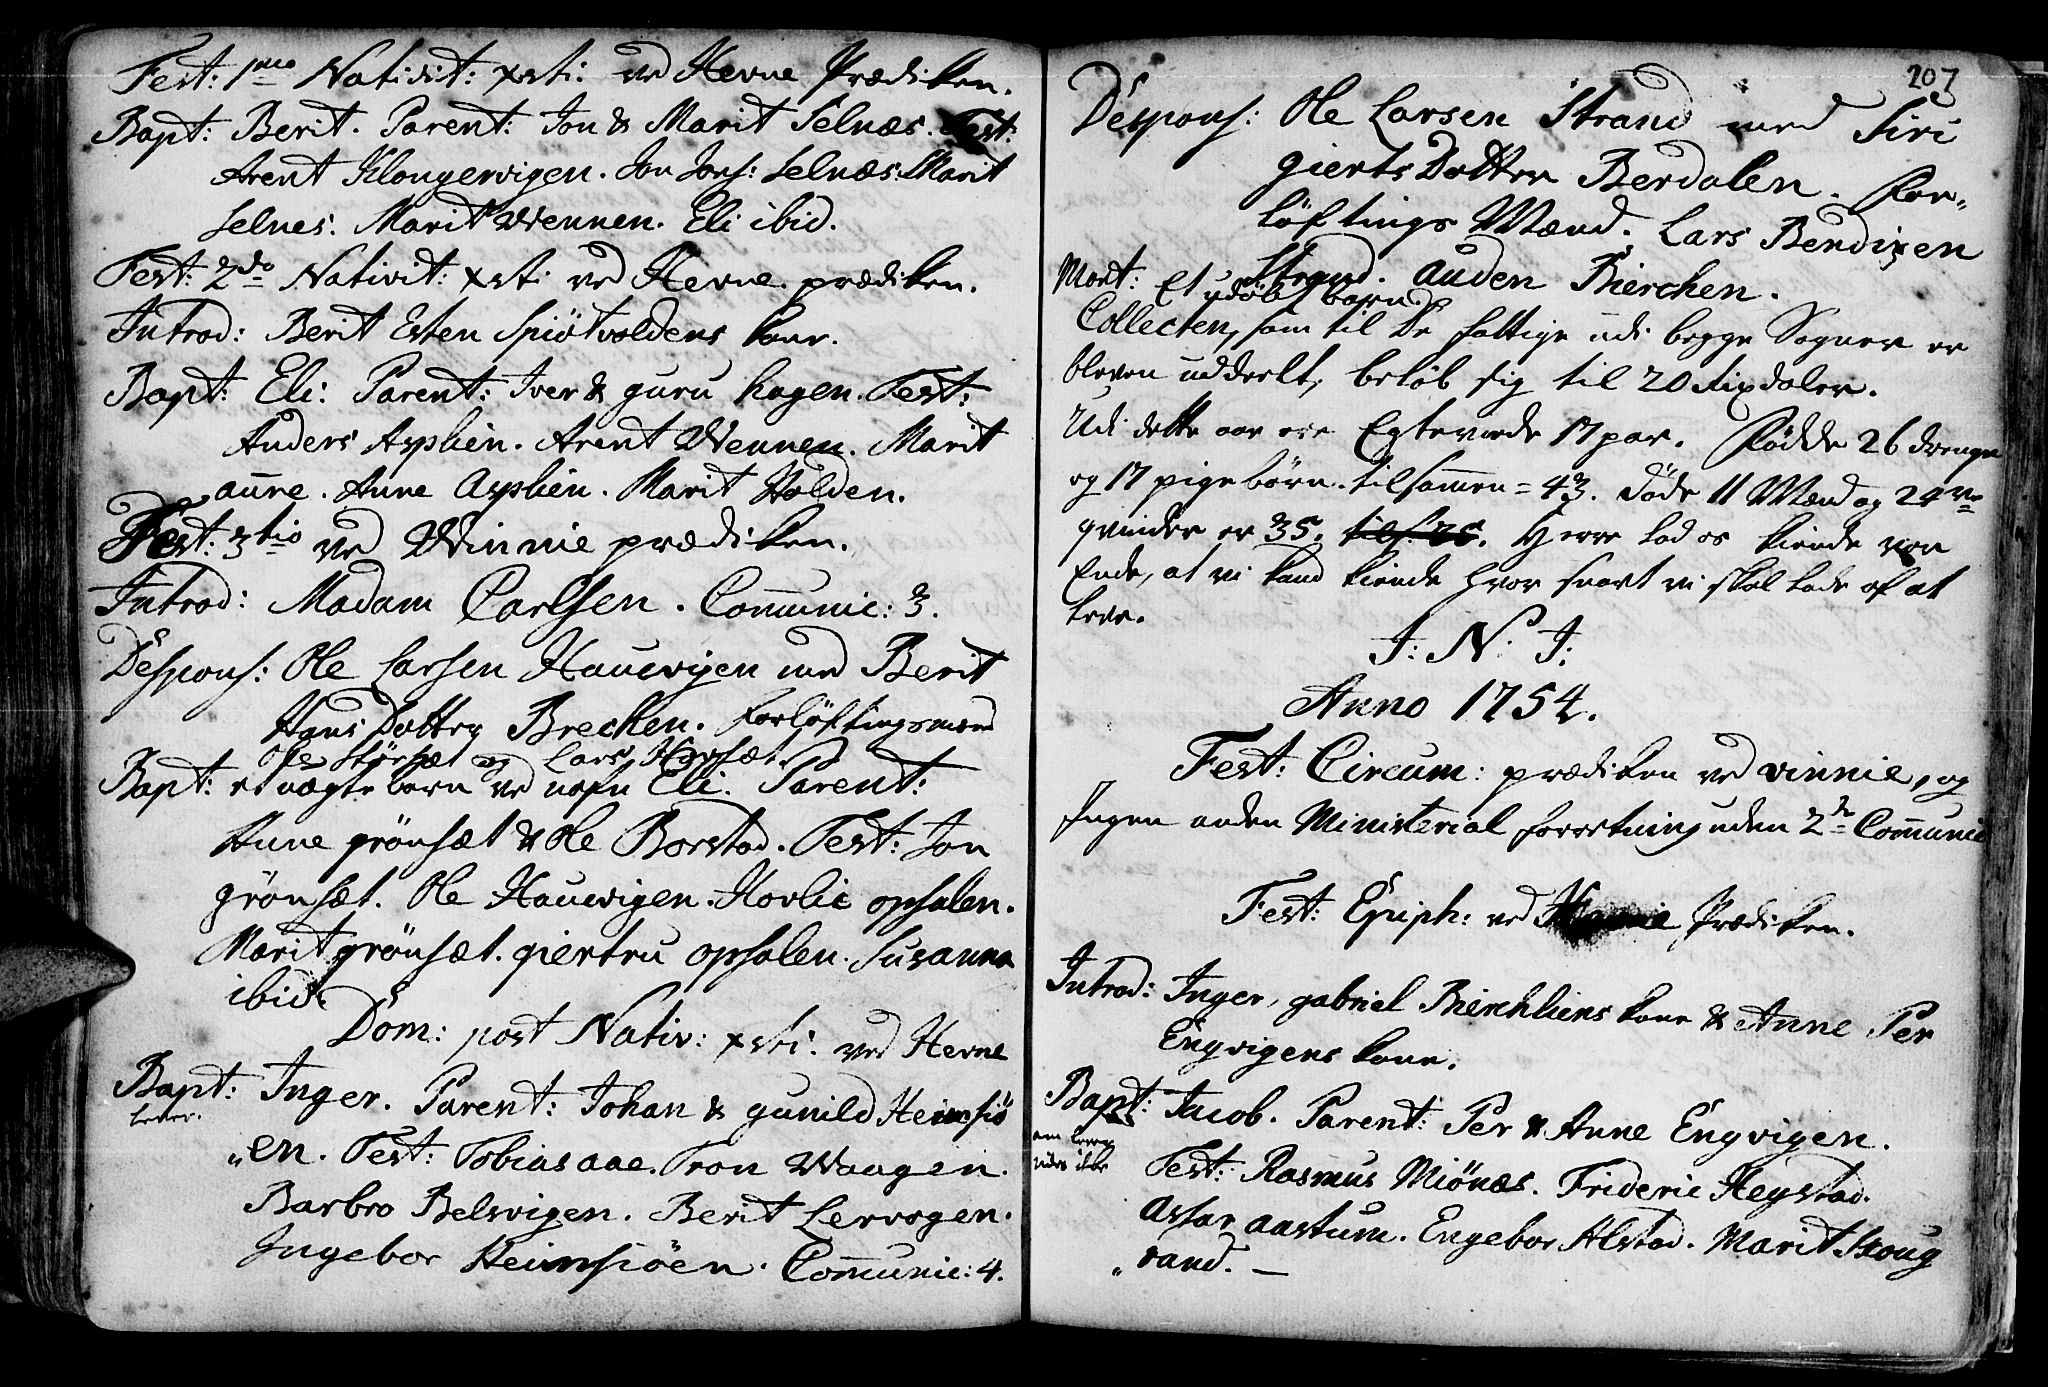 Fest: 1mo Nativit: xsti: ved Hevne Prædiken.
Bapt: Berit. Parent: Jon & Marit Selnæs. Test:
Arent Klongervigen. Jon Jons: Selnæs: Marit
Selnes. Marit Wennen. Eli ibid.
Fest: 2do Nativit: xsti ved Hevne prædiken.
Introd: Berit Esten Spiøtvoldens kone.
Bapt: Eli: Parent: Iver & guru hagen. Test:
Anders Asplien. Arent Wennen. Marit
aune. Anne Asplien. Marit Holden.
Fest: 3tio ved Winnie prædiken.
Introd: Madam Carlsen. Com̄unic: 3.
Despons: Ole Larsen Hauevigen med Berit
Hans Dotter Brechen. Forløftingsmænd
Ole Størsæt og Lars
Bapt: et uægte barn ved nafn Eli. Parent:
Anne grönsæt & Ole Borstad. Test: Jon
grönsæt. Ole Hauevigen. Hovlie opsalen.
Marit grönsæt. giertru opsalen. Susanna
ibid.
Dom: post Nativ: xsti: ved Hevne
Bapt: Inger. Parent: Johan & gunild Heimsiö
lever.
„en. Test: Tobias aae. Tron Waagen.
Barbro Belsvigen. Berit Lervogen.
Ingebor Heimsiöen. Com̄unic: 4.
207
Despons: Ole Larsen Strand med Siri
gierts Dotter Berdalen. For„
løftings Mænd. Lars Bendixen
Strand. Auden Bierchen.
Mort: Et udøbt barn
Collecten, som til De fattige udi begge Sogner er
bleven uddeelt, beløb sig til 20 Rixdaler.
Udi dette aar ere Egteviede 17 par. Fødde 26 drenge
og 17 pigebørn. tilsam̄en = 43. døde 11 Mænd og 24re
qvinder er 35. tils. 35. Herre lad os kiende vor
Ende, at vi kand kiende hvor snart vi skal lade af at
leve.
J: N: J:
Anno 1754.
Fest: Circum: prædiken ved vinnie, og
Ingen anden Ministerial forretning uden 2de Com̄unic
Fest: Epiph: ved Prædiken.
Introd: Inger, gabriel Bierchliens kone & Anne Per
Engvigens kone.
Bapt: Jacob. Parent: Per & Anne Engvigen.
om lever
vides ikke
Test: Rasmus Miönæs. Frideric Hegstad.
Assar aastum. Engebor Alstad. Marit Skoug
„rand. —